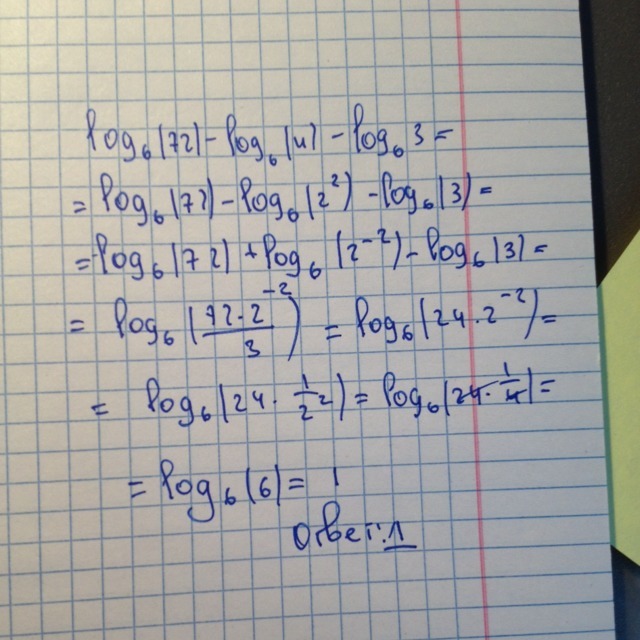 log₆(72) - log₆(4) - log₆ 3 =
= log₆(72) - log₆(2²) - log₆(3) =
= log₆(72) + log₆(2⁻²) - log₆(3) =
= log₆(72·2⁻²/3) = log₆(24·2⁻²) =
= log₆(24 · 1/2²) = log₆(24 · 1/4) =
= log₆(6) = 1
Ответ: 1